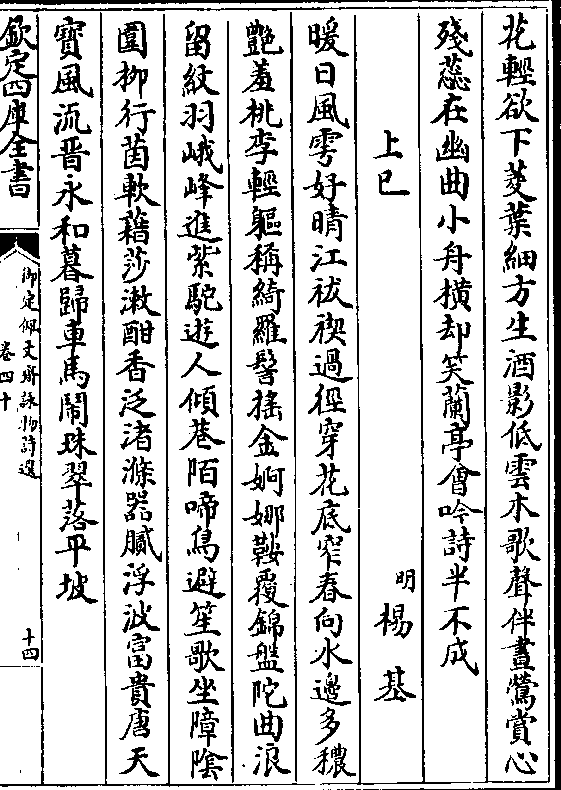 花輕欲下菱葉細方生酒影低雲木歌聲伴晝鶯賞心
殘蕊在幽曲小舟橫却笑蘭亭會吟詩半不成
上巳
明楊基
暖日風雩好晴江祓禊過徑穿花底窄春向水邊多穠
艷羞桃李輕軀稱綺羅髻搖金婀娜鞍覆錦盤陀曲浪
留紋羽峨峰進紫駝遊人傾巷陌啼鳥避笙歌坐障陰
圍柳行茵軟藉莎漱酣香泛渚滌器膩浮波富貴唐天
寶風流晉永和暮歸車馬鬧珠翠落平坡
欽定四庫全書
御定佩文齋詠物詩選
卷四十
十四